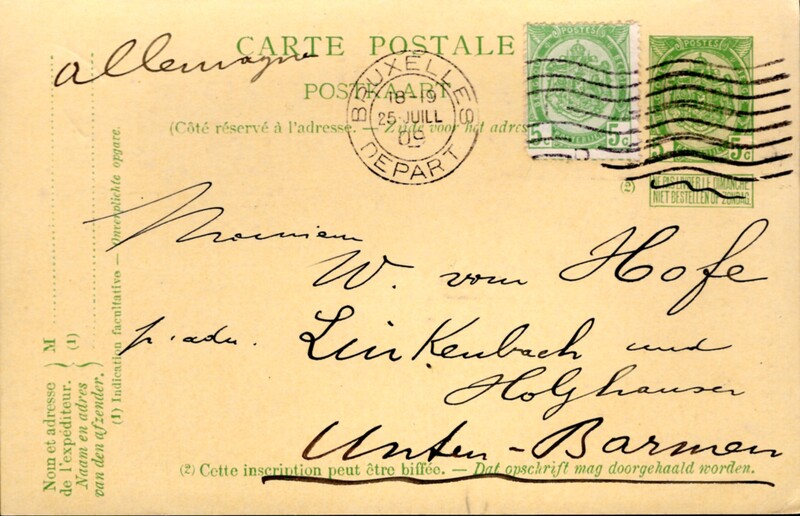 CARTE POSTALE
Allemagne
POSTKAART
(Côté réservé à l'adresse. — Zijde voor het adres
BRUXELLES
18-19
25 JUILL
09
DEPART
POSTES
5c 5c
POSTES
5c 5c
(2) NE PAS LIVRER LE DIMANCHE
NIET BESTELLEN OP ZONDAG
Monsieur
W. vom Hofe
p. adr. Linkenbach und
Holzhauser
Unter-Barmen
(2) Cette inscription peut être biffée. — Dat opschrift mag doorgehaald worden.
Nom et adresse
de l'expéditeur.
Naam en adres
van den afzender.
M
(1)
(1) Indication facultative — Onverplichte opgave.